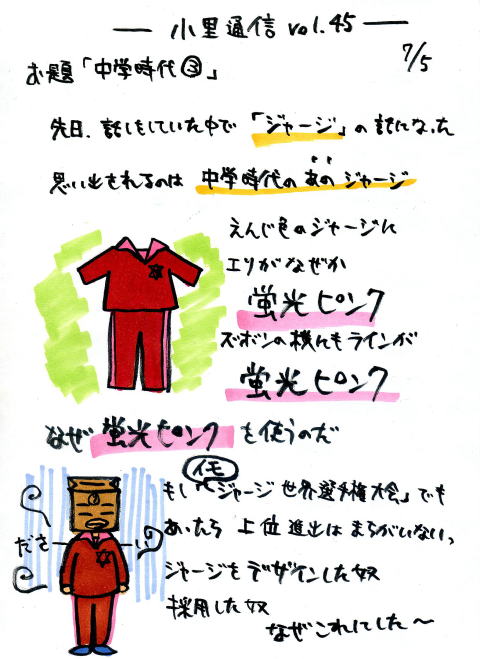 小里通信 vol.45
7/5
お題「中学時代③」
先日、話しをしていた中で「ジャージ」の話になった
思い出されるのは 中学時代のあのジャージ
えんじ色のジャージに
エリがなぜか
蛍光ピンク
ズボンの横んもラインが
蛍光ピンク
なぜ蛍光ピンクを使うのだ
もし「イモジャージ世界選手権大会」でも
あったら 上位進出はまちがいないっ
ださーい
ジャージをデザインした奴
採用した奴
なぜこれにした〜